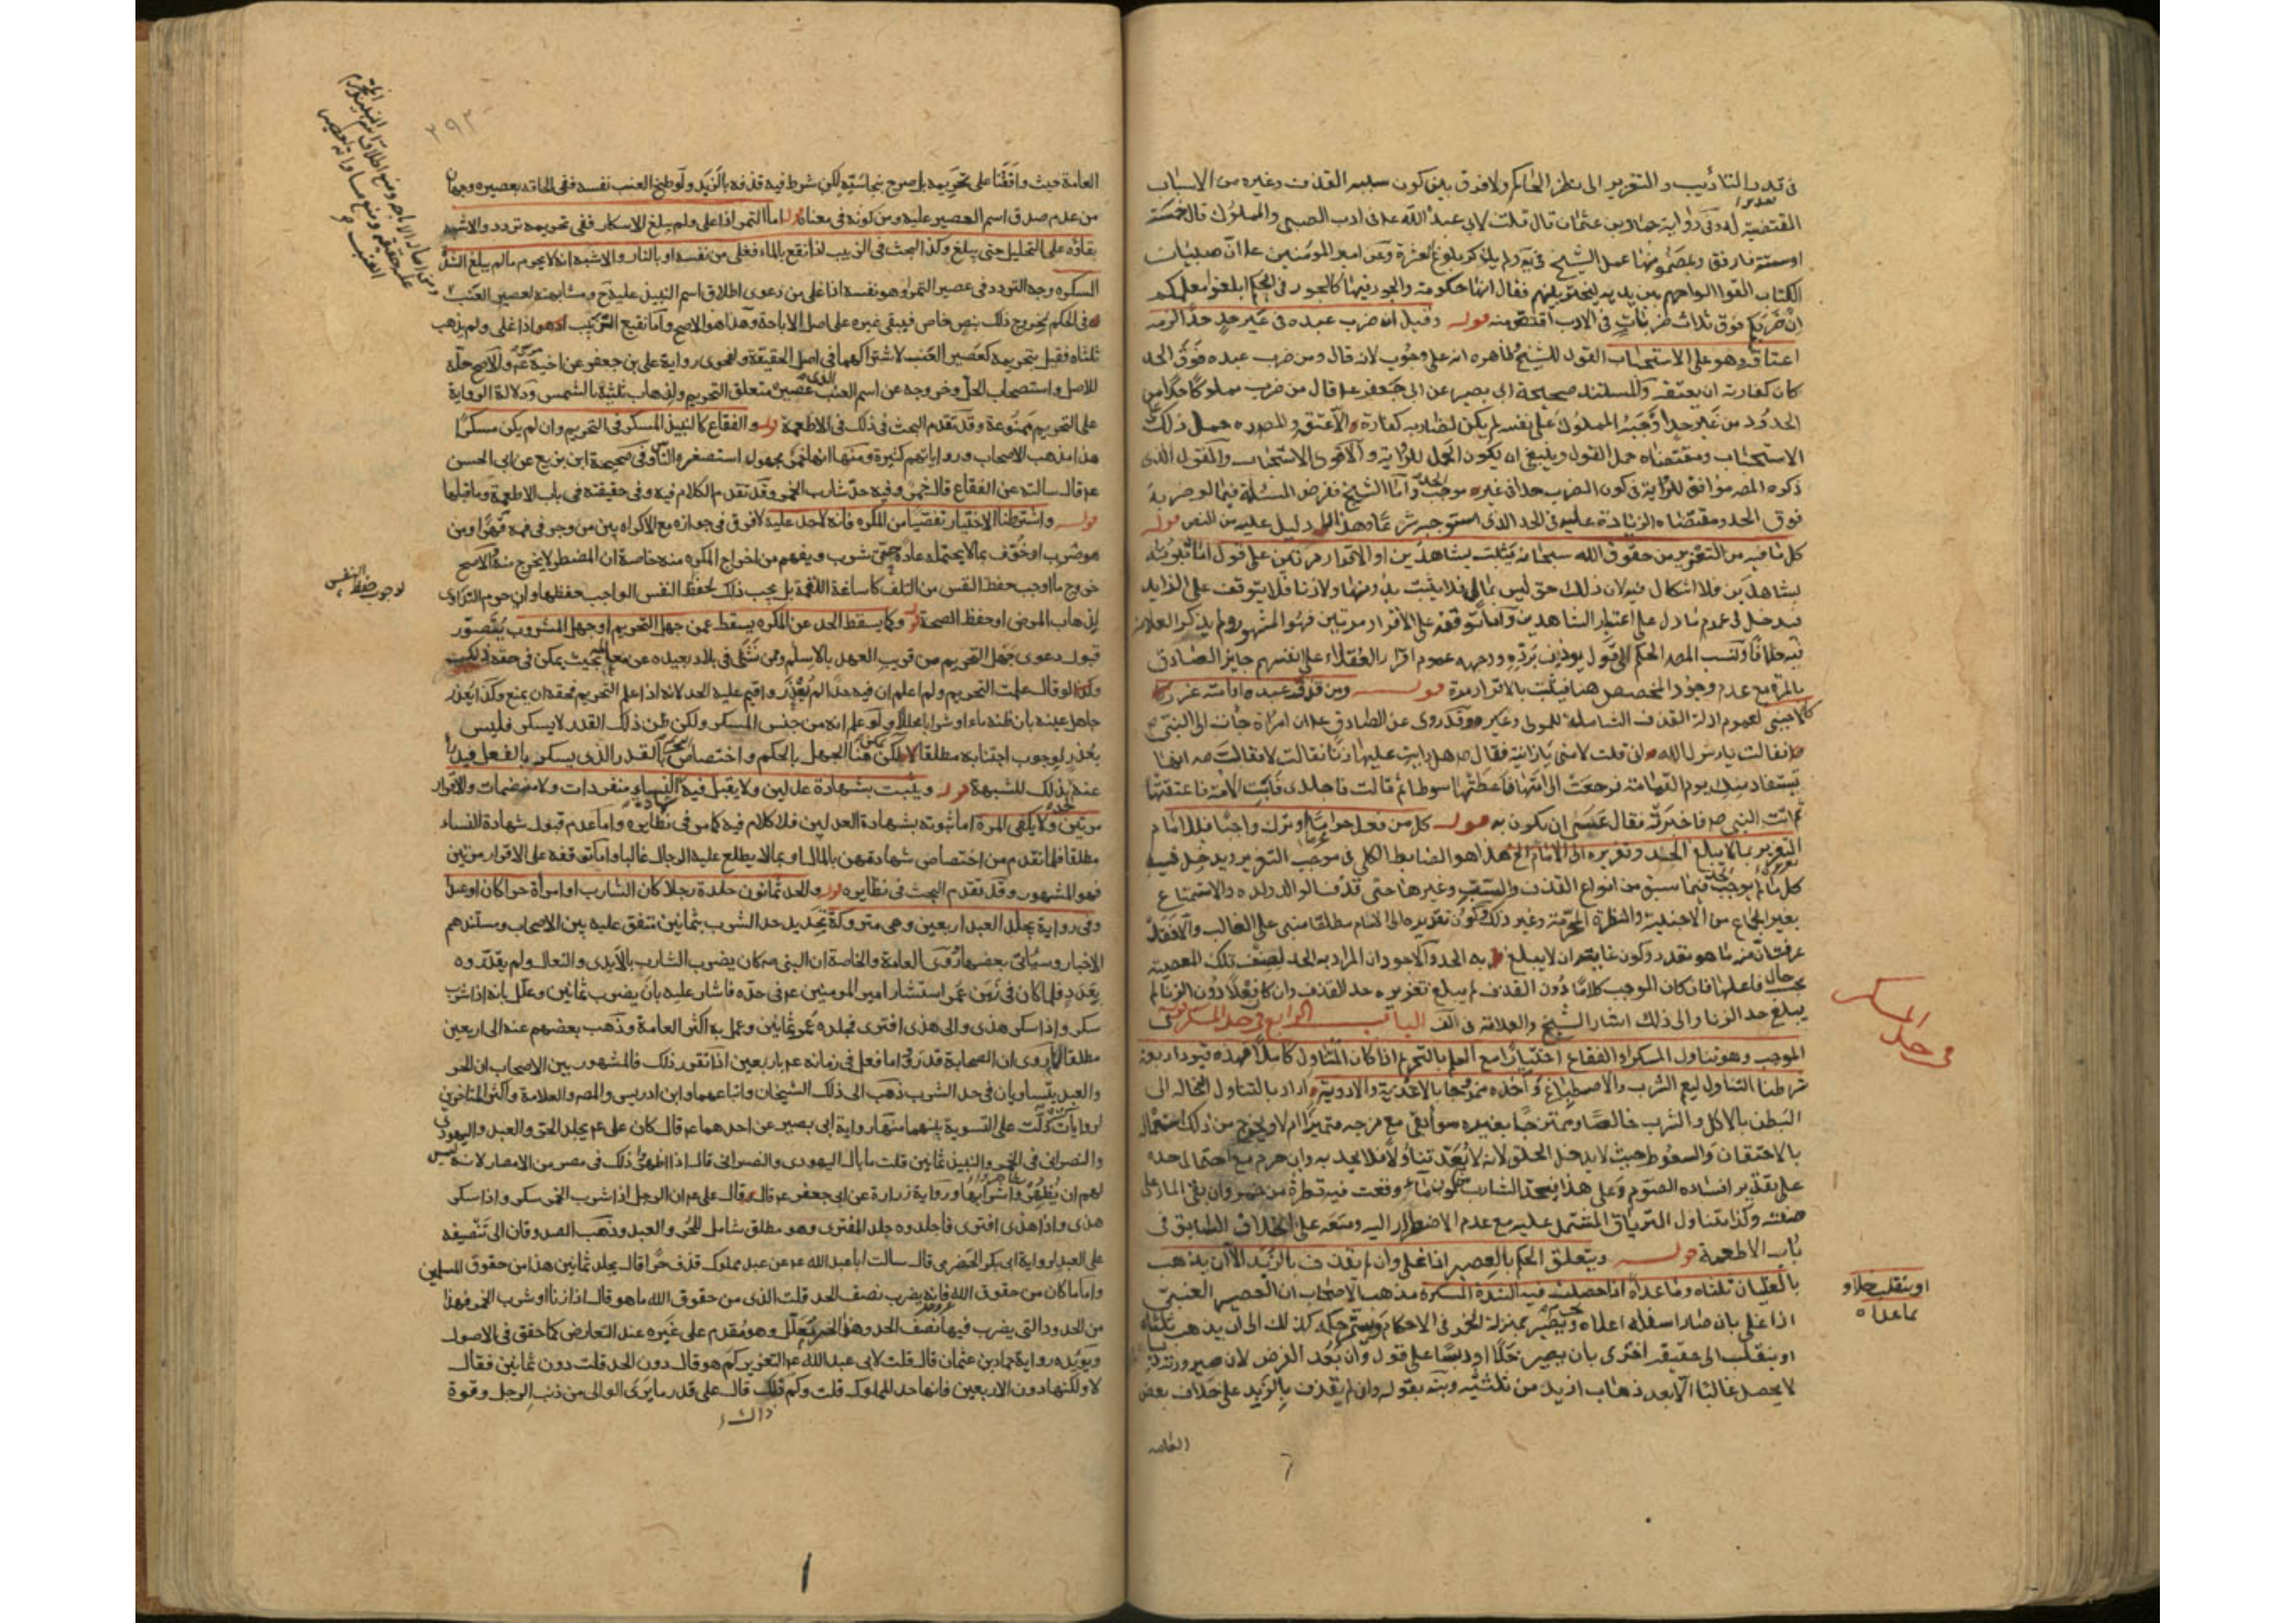 في قدر التأديب والتعزير الى نظر الحاكم ولا فرق بين كون سببه القذف وغيره من الاسباب
المقتضية له وفي رواية حماد بن عثمان قال قلت لابي عبد الله ع في ادب الصبي والمملوك قال خمسة
او ستة فارفق وبمضمونها عمل الشيخ في ية ولم يذكر بلوغ العشرة وعن امير المؤمنين ع ان صبيان
الكتاب القوا الواحهم بين يديه ليخير بينهم فقال انها حكومة والجور فيها كالجور في الحكم ابلغوا معلمكم
ان ضربكم فوق ثلاث ضربات في الادب اقتص منه قوله وقيل ان ضرب عبده في غير حد حدا لزمه
اعتاقه وهو على الاستحباب القول للشيخ ظاهره انه على وجوب لانه قال ومن ضرب عبده فوق الحد
كان كفارته ان يعتقه والمستند صحيحة ابي بصير عن ابي جعفر ع قال من ضرب مملوكا حدا من
الحدود من غير حد اوجبه المملوك على نفسه لم يكن لضاربه كفارة الا عتقه والمصره حمل ذلك على
الاستحباب ومقتضاه حمل القول وينبغي ان يكون الحمل للرواية والاقوى الاستحباب والقول الذي
ذكره المصه موافق للرواية في كون الضرب حدا في غيره موجب الحد واما الشيخ ففرض المسئلة فيما لو ضربه
فوق الحد ومقتضاه الزيادة عليه في الحد الذي استوجبه شرعا وهذا لا دليل عليه من النص قوله
كل ما فيه من التعزير من حقوق الله سبحانه يثبت بشاهدين او الاقرار مرتين على قول اما ثبوته
بشاهدين فلا اشكال فيه لان ذلك حق ليس بمالي فلا يثبت بدونهما ولا زنا فلا يتوقف على الزايد
فيدخل في عموم ما دل على اعتبار الشاهدين واما توقفه على الاقرار مرتين فهو المشهور ولم يذكر العلامة
فيه خلافا ونسب المصه الحكم الى قول يوذن برده ووجهه عموم اقرار العقلاء على انفسهم جايز الصادق
بالمرة مع عدم وجود المخصص هنا فيثبت بالاقرار مرة قوله ومن قذف عبده او امته عزر
كالاجنبي لعموم ادلة القذف الشاملة للمولى وغيره وقد روى عن الصادق ع ان امراة جائت الى النبي ص
فقالت يا رسول الله اني قلت لامتي يا زانية فقال ص هل رايت عليها زنا فقالت لا فقالت ص انها
تستقاد منك يوم القيامة فرجعت الى امتها فاعطتها سوطا ثم قالت فاجلدي فابت الامة فاعتقتها
ثم اتت النبي ص فاخبرته فقال عسى ان يكون به قوله كل من فعل حراما او ترك واجبا فللامام
التعزير بما لا يبلغ الحد وتقديره الى الامام الخ هذا هو الضابط الكلي في موجب التعزير ويدخل فيه
كل ما لم يوجب الحد فيما سبق من انواع القذف والسب وغيرها حتى قذف الوالد ولده والاستمتاع
بغير الجماع من الاجنبية والنظرة المحرمة وغير ذلك وكون تقديره الى الامام مطلقا مبني على الغالب والا فقد
عرفت ان منه ما هو مقدر وكون غايته ان لا يبلغ به الحد والاجود ان المراد به الحد لصنف تلك المعصية
بحسب حال فاعلها فان كان الموجب كلاما دون القذف لم يبلغ تعزيره حد القذف وان كان فعلا دون الزنا لم
يبلغ حد الزنا والى ذلك اشار الشيخ والعلامة في لف الباب الرابع في حد المسكر
الموجب وهو تناول المسكر او الفقاع اختيارا مع العلم بالتحريم اذا كان المتناول كاملا فهذه قيود اربعة
شرطنا التناول ليعم الشرب والاصطباغ واخذه ممزوجا بالاغذية والادوية اراد بالتناول ادخاله الى
البطن بالاكل والشرب خالصا وممتزجا بغيره سواء بقي مع مزجه متميزا ام لا ويخرج من ذلك استعماله
بالاحتقان والسعوط حيث لا يدخل الحلق لانه لا يعد تناولا فلا يحد به وان حرم مع احتمال حده
على تقدير افساده الصوم وعلى هذا فيحد الشارب لكون ماء وقعت فيه قطرة من خمر وان بقي الماء على
صفته وكذا متناول الترياق المشتمل عليه مع عدم الاضطرار اليه ومعه على الخلاف السابق في
باب الاطعمة قوله ويتعلق الحكم بالعصير اذا غلى وان لم يقذف بالزبد الا ان يذهب
بالغليان ثلثاه وما عداه اذا حصلت فيه الشدة المسكرة مذهب الاصحاب ان العصير العنبي
اذا غلى بان صار اسفله اعلاه يصير بمنزلة الخمر في الاحكام ويستمر حكمه كذلك الى ان يذهب ثلثاه
او ينقلب الى حقيقة اخرى بان يصير خلا او دبسا على قول وان بعد الفرض لان صيرورته دبسا
لا يحصل غالبا الا بعد ذهاب ازيد من ثلثيه ونبه بقوله وان لم يقذف بالزبد على خلاف بعض
العامه
في حد المسكر
او ينقلب خلا و
ما عداه
٢٩٣
العامة حيث وافقنا على تحريمه بل صرح بنجاسته لكن شرط فيه قذفه بالزبد ولو طبخ العنب نفسه ففي الحاقه بعصيره وجهان
من عدم صدق اسم العصير عليه ومن كونه في معناه قوله اما التمر اذا غلى ولم يبلغ الاسكار ففي تحريمه تردد والاشبه
بقاؤه على التحليل حتى يبلغ وكذا البحث في الزبيب اذا نقع بالماء فغلى من نفسه او بالنار والاشبه انه لا يحرم ما لم يبلغ الشدة
المسكره وجه التردد في عصير التمر او هو نفسه اذا غلى من دعوى اطلاق اسم النبيذ عليه ح ومشابهته لعصير العنب
في الحكم بخروج ذلك بنص خاص فيبقى غيره على اصل الاباحة وهذا هو الاصح واما نقيع الزبيب وهو اذا غلى ولم يذهب
ثلثاه فقيل بتحريمه كعصير العنب لاشتراكهما في اصل الحقيقة ولفحوى رواية علي بن جعفر عن اخيه موسى ع والاصح حله
للاصل واستصحاب الحل وخروجه عن اسم العنب الذي عصيره متعلق التحريم ولذهاب ثلثيه بالشمس ودلالة الرواية
على التحريم ممنوعة وقد تقدم البحث في ذلك في الاطعمة قوله والفقاع كالنبيذ المسكر في التحريم وان لم يكن مسكرا
هذا مذهب الاصحاب ورواياتهم كثيرة ومنها انها خمر مجهول استصغره الناس وفي صحيحة ابن بزيع عن ابي الحسن
ع قال سالته عن الفقاع قال خمر وفيه حد شارب الخمر وقد تقدم الكلام فيه وفي حقيقته في باب الاطعمة وما قبلها
قوله واشترطنا الاختيار تفصيا من المكره فانه لا حد عليه لا فرق في جوازه مع الاكراه بين من وجر في فمه قهرا وبين
من ضرب او خوف بما لا يحتمله عادة حتى شرب ويفهم من اخراج المكره منه خاصة ان المضطر لا يخرج منه والاصح
خروج ما اوجب حفظ النفس من التلف كاساغة اللقمة بل يجب ذلك لحفظ النفس الواجب حفظها وان حرم التداوي
لذهاب المرض او حفظ الصحة قوله وكما يسقط الحد عن المكره يسقط عمن جهل التحريم او جهل المشروب يتصور
قبول دعوى جهل التحريم من قريب العهد بالاسلام ومن نشأ في بلاد بعيده عن معالمه بحيث يمكن في حقه ذلك
وكذا لو قال علمت التحريم ولم اعلم ان فيه حدا لم يعذر واقيم عليه الحد لانه اذا علم التحريم فحقه ان يمتنع وكذا يعذر
جاهل عينه بان ظنه ماء او شرابا محللا ولو علم انه من جنس المسكر ولكن ظن ذلك القدر لا يسكر فليس
بعذر لوجوب اجتنابه مطلقا لكن هنا الجهل بالحكم واختصاص بالقدر الذي يسكر بالفعل فيدرأ
عنه بذلك للشبهة قوله ويثبت بشهادة عدلين ولا يقبل فيه شهادة النساء منفردات ولا منضمات والاقرار
مرتين ولا يكفي المرة اما ثبوته بشهادة العدلين فلا كلام فيه كما مر في نظايره واما عدم قبول شهادة النساء
مطلقا فلما تقدم من اختصاص شهادتهن بالمال او بما لا يطلع عليه الرجال غالبا واما توقفه على الاقرار مرتين
فهو المشهور وقد تقدم البحث في نظايره قوله والحد ثمانون جلدة رجلا كان الشارب او امرأة حرا كان او عبدا
وفي رواية يجلد العبد اربعين وهي متروكة تحديد حد الشرب بثمانين متفق عليه بين الاصحاب ومستندهم
الاخبار وسيأتي بعضها وروى العامة والخاصة ان النبي ص كان يضرب الشارب بالايدي والنعال ولم يقدروه
بعدد فلما كان في زمن عمر استشار امير المومنين ع في حده فاشار عليه بان يضرب ثمانين وعلل بانه اذا شرب
سكر واذا سكر هذى واذا هذى افترى فجلده عمر ثمانين وعمل به اكثر العامة وذهب بعضهم عنه الى اربعين
مطلقا لما روى ان الصحابة قدروا ما فعل في زمانه ع باربعين اذا تقرر ذلك فالمشهور بين الاصحاب ان الحر
والعبد يتساويان في حد الشرب ذهب الى ذلك الشيخان واتباعهما وابن ادريس والمصه والعلامة واكثر المتاخرين
لروايات دلت على التسوية بينهما منها رواية ابي بصير عن احدهما ع قال كان علي ع يجلد الحر والعبد واليهودي
والنصراني في الخمر والنبيذ ثمانين قلت ما بال اليهودي والنصراني قال اذا اظهروا ذلك في مصر من الامصار لانه ليس
لهم ان يظهروا شربها ورواية زرارة عن ابي جعفر ع قال قال علي ع ان الرجل اذا شرب الخمر سكر واذا سكر
هذى واذا هذى افترى فاجلدوه جلد المفترى وهو مطلق شامل للحر والعبد وذهب الصدوق ان الى تنصيفه
على العبد لرواية ابي بكر الحضرمي قال سالت ابا عبد الله ع عن عبد مملوك قذف حرا قال يجلد ثمانين هذا من حقوق المسلمين
واما ما كان من حقوق الله فانه يضرب نصف الحد قلت الذي من حقوق الله ما هو قال اذا زنا او شرب الخمر فهذا
من الحدود التي يضرب فيها نصف الحد وهو الخبر معلل وهو مقدم على غيره عند التعارض كما حقق في الاصول
ويؤيده رواية حماد بن عثمان قال قلت لابي عبد الله ع التعزير كم هو قال دون الحد قلت دون ثمانين فقال
لا ولكنها دون الاربعين فانها حد المملوك قلت وكم ذلك قال على قدر ما يرى الوالي من ذنب الرجل وقوة
لوجوب حفظ النفس